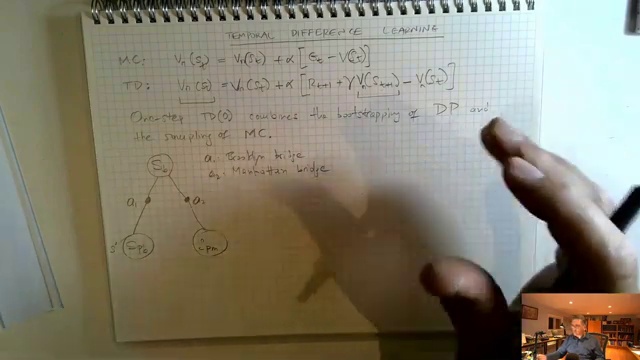 TEMPORAL DIFFERENCE LEARNING
MC: Vπ(St) = Vπ(St) + α [Gt − V(St)]
TD: Vπ(St) = Vπ(St) + α [Rt+1 + γ Vπ(St+1) − Vπ(St)]
One-step TD(0) combines the bootstrapping of DP and
the sampling of MC.
a1: Brooklyn bridge
a2: Manhattan bridge
a1 a2